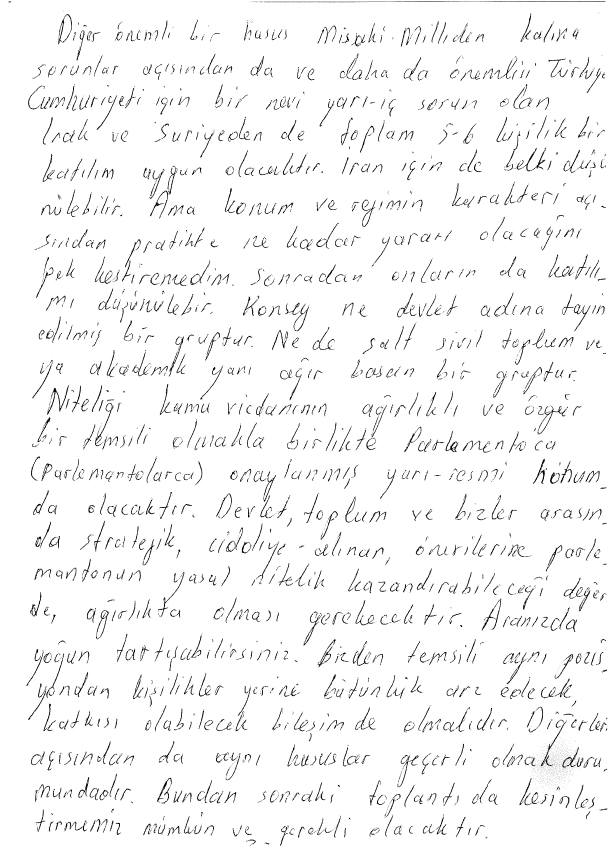 Diğer önemli bir husus Misaki-Milliden kalma
sorunlar açısından da ve daha da önemlisi Türkiye
Cumhuriyeti için bir nevi yarı-iç sorun olan
Irak ve Suriyeden de toplam 5-6 kişilik bir
katılım uygun olacaktır. İran için de belki düşü
nülebilir. Ama konum ve rejimin karakteri açı-
sından pratikte ne kadar yararı olacağını
pek kestiremedim. Sonradan onların da katılı-
mı düşünülebir. Konsey ne devlet adına tayin
edilmiş bir gruptur. Ne de salt sivil toplum ve-
ya akademik yanı ağır basan bir gruptur.
Niteliği kamu vicdanının ağırlıklı ve özgür
bir temsili olmakla birlikte Parlamento'ca
(Parlemantolarca) onaylanmış yarı-resmi konum-
da olacaktır. Devlet, toplum ve bizler arasın-
da stratejik, ciddiye-alınan, önerilerine parle-
mantonun yasal nitelik kazandırabileceği değer
de, ağırlıkta olması gerekecektir. Aranızda
yoğun tartışabilirsiniz. Bizden temsili aynı pozis
yondan kişilikler yerine bütünlük arz edecek,
katkısı olabilecek bileşim de olmalıdır. Diğerleri
açısından da aynı hususlar geçerli olmak duru-
mundadır. Bundan sonraki toplantı da kesinleş-
tirmemiz mümkün ve gerekli olacaktır.